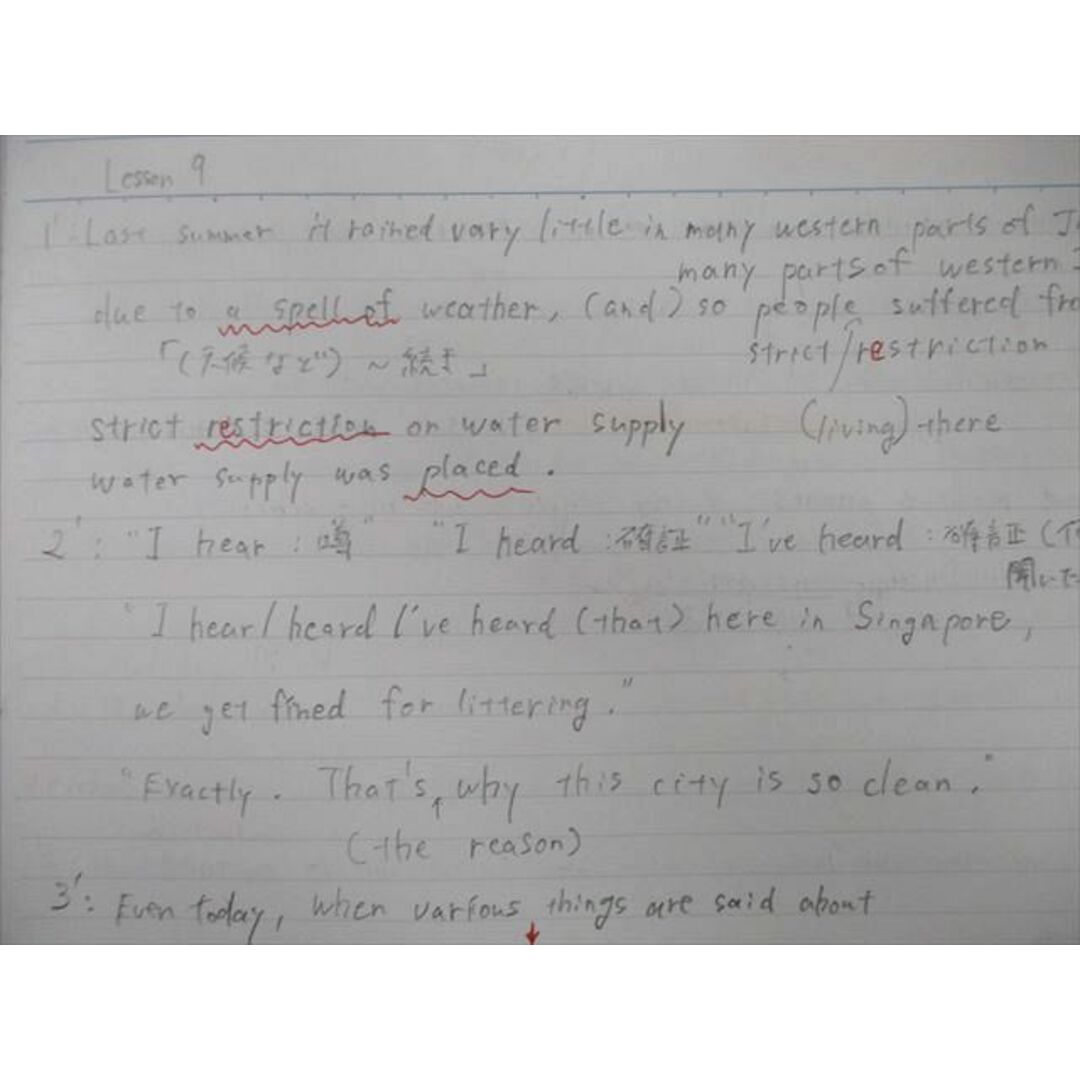 Lesson 9
1': Last summer it rained vary little in many western parts of J
many parts of western
due to a spell of weather, (and) so people suffered fro
「(天候など) ~ 続き」
strict/restriction
strict restriction on water supply (living) there
water supply was placed.
2': "I hear : 噂" "I heard : 確証" "I've heard : 確証 (
聞いた
"I hear/heard/I've heard (that) here in Singapore,
we get fined for littering."
"Exactly. That's, why this city is so clean."
(the reason)
3': Even today, when various things are said about